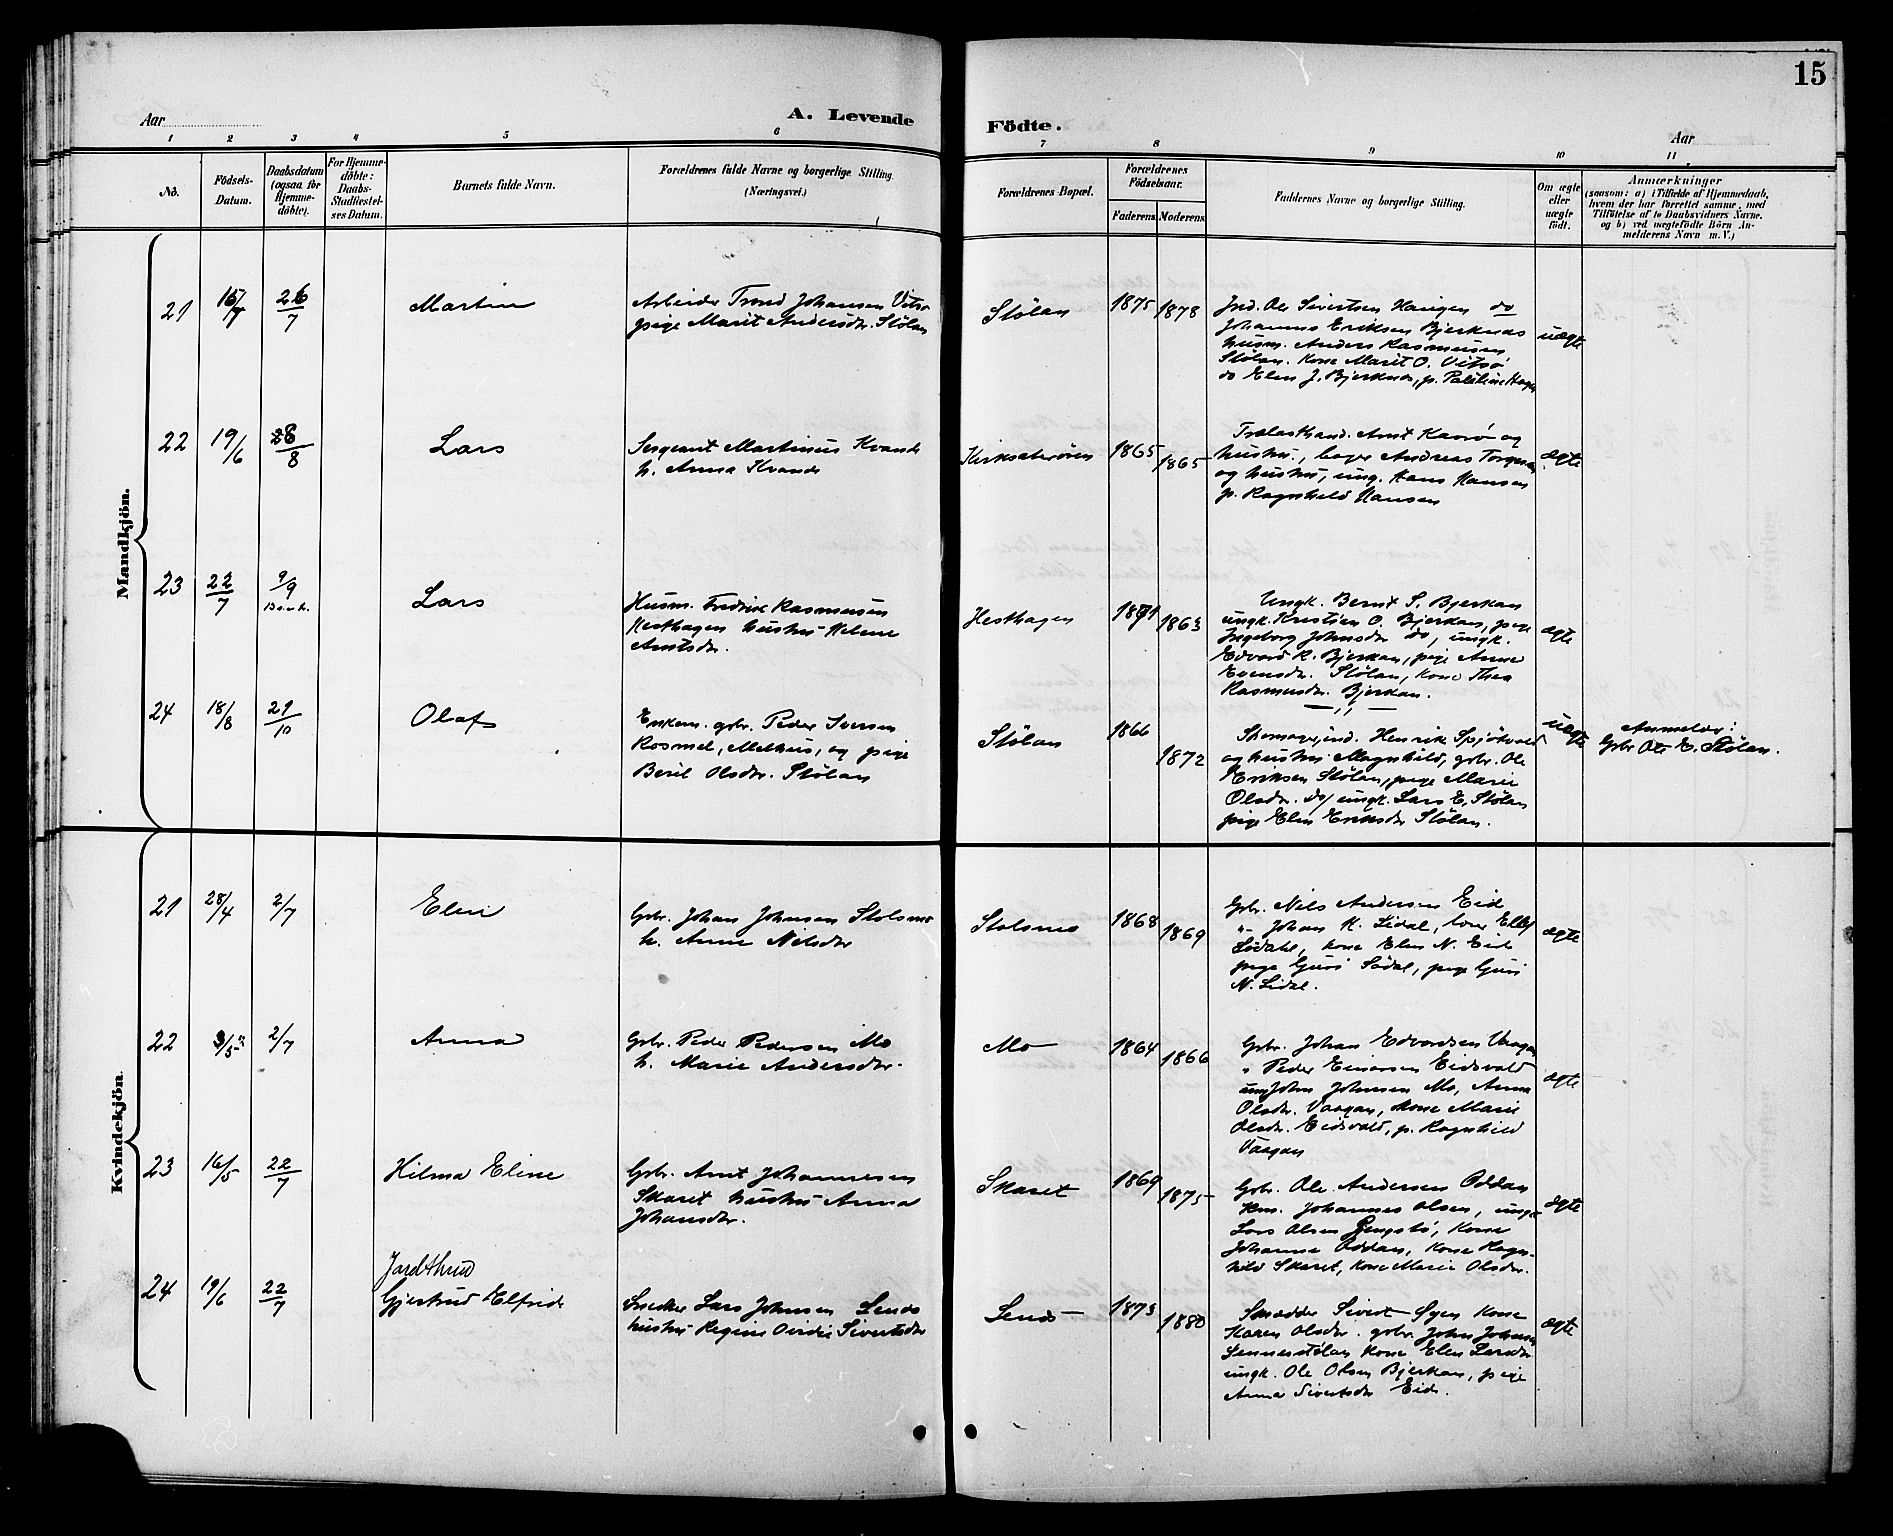 15
Aar
A. Levende
Födte.
Aar
1 2 3 4 5 6 7 8 9 10 11
No.
Födsels-
Datum.
Daabsdatum
(ogsaa for
Hjemme-
döbte).
For Hjemme-
döbte:
Daabs-
Stadfæstel-
ses Datum.
Barnets fulde Navn.
Forældrenes fulde Navne og borgerlige Stilling.
(Næringsvei.)
Forældrenes Bopæl.
Forældrenes
Födselsaar.
Faderens
Moderens
Faddernes Navne og borgerlige Stilling.
Om ægte
eller
uægte
födt.
Anmærkninger
(saasom: a) i Tilfælde af Hjemmedaab,
hvem der har forrettet samme, med
Tilföielse af to Daabsvidners Navne.
og b) ved uægtefödte Börn An-
melderens Navn m. V.)
Mandkjön.
21 15/7 26/7 Martin
Arbeider Trond Johansen Vitsø
pige Marit Andersdr. Stölan
Stölan 1875 1878
Ind. Ole Sivertsen Haugen do
Johannes Eriksen Bjerknes
husm. Anders Rasmussen
Stölan. Kone Marit O. Vitsø
do Elen J. Bjerknes, p.
uægte
22 19/6 28/8 Lars
Sergeant Martinus Kvande
h. Anna Kvande
Kirksæterören 1865 1865
Trælasthand. Arnt
hustru, Andreas
og hustru, ung. Hans Hansen
p. Ragnhild Hansen
ægte
23 22/7 9/9 Lars
Husm. Fredrik Rasmussen
Hesthagen hustru Helene
Arntsdr.
Hesthagen 1871 1863
Ungk. Bernt S. Bjerkan
ungk. Kristian O. Bjerkan, pige
Ingeborg Johnsdr do, ungk.
Edvard R. Bjerkan, pige Anne
Evensdr. Stölan, kone Thea
Rasmusdr. Bjerkan.
ægte
24 18/8 29/10 Olaf
Enkem. gbr. Peder Iversen
Rosmel, Melhus, og pige
Beril Olsdr. Stölan
Stölan 1866 1872
Skomager, ind. Henrik Spjötvold
og hustru Magnhild, gbr. Ole
Eriksen Stölan, pige Marie
Olsdr. do, ungk. Lars E. Stölan
pige Elen Eriksdr Stölan.
uægte
Anmelder:
Gbr. Ole E. Stölan.
Kvindekjön.
21 28/4 2/7 Elen
Gbr. Johan Johnsen Stolsmo
h. Anne Nilsdr
Stolsmo 1868 1869
Gbr. Nils Andersen Eid
" Johan K. Lidal,
kone Elen N. Eid
pige Guri Södal, pige Guri
N. Lidal.
ægte
22 3/5 2/7 Anna
Gbr. Peder Pedersen Mo
h. Marie Andersdr.
Mo 1864 1866
Gbr. Johan Edvardsen Vaagan
" Peder Einarsen Eidsvold
ung John Johnsen Mo, Anna
Olsdr. Vaagan, kone Marie
Olsdr. Eidsvold, p. Ragnhild
Vaagan
ægte
23 16/5 22/7 Hilma Eline
Gbr. Arnt Johannesen
Skaret hustru Anna
Johansdr.
Skaret 1869 1875
Gbr. Ole Andersen Oddan
Hm. Johannes Olsen, ungk.
Lars Olsen Gengstö, kone
Johanne Oddan, kone Ragn-
hild Skaret, kone Marie Olsdr.
ægte
24 19/6 22/7 Jardthrud
Gjertrud Elfride
Snedker Lars Johnsen Lende
hustru Regine Ovidie Sivertsdr
Lende 1873 1880
Skrædder Sivert Öyen kone
Karen Olsdr. gbr. John Johnsen
kone Elen Larsdr
ungk. Ole Olsen Bjerkan, pige
Anna Sivertsdr Eid.
ægte